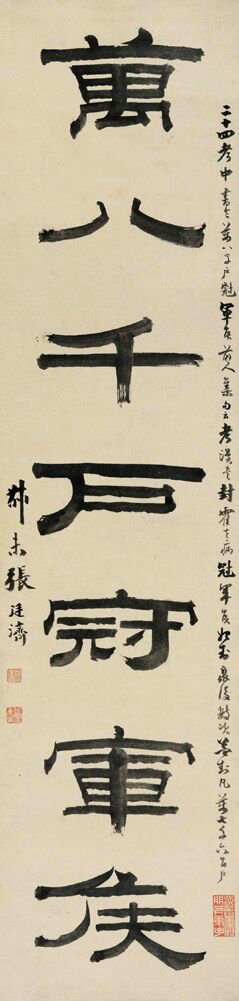 二十四考中書令萬八千戶冠軍侯前人集句云考漢書封霍去病冠軍侯後數次益封凡萬七千六百戶
萬八千戶冠軍矦
叔未張廷濟